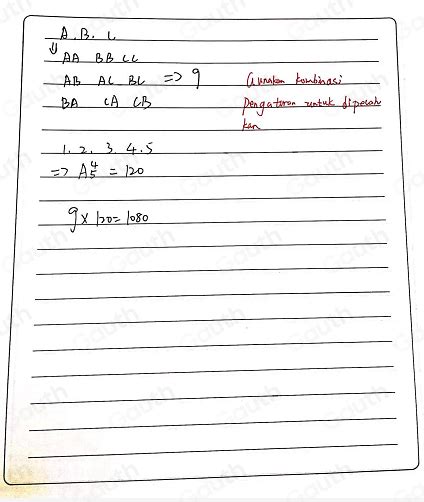 A. B. C
↓
AA BB CC
AB AC BC => 9
BA CA CB
Gunakan kombinasi
pengaturan untuk dipecah
kan
1. 2. 3. 4. 5
=> A⁴₅ = 120
9 x 120 = 1080